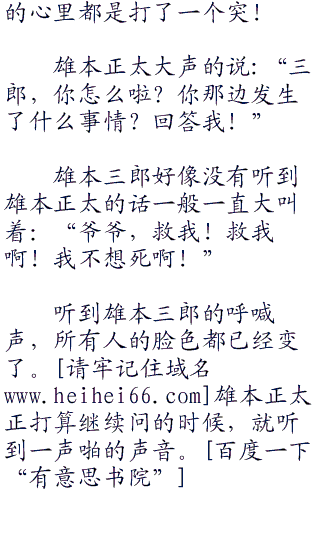 的心里都是打了一个突！
雄本正太大声的说：“三
郎，你怎么啦？你那边发生
了什么事情？回答我！”
雄本三郎好像没有听到
雄本正太的话一般一直大叫
着：“爷爷，救我！救我
啊！我不想死啊！”
听到雄本三郎的呼喊
声，所有人的脸色都已经变
了。[请牢记住域名
www.heihei66.com]雄本正太
正打算继续问的时候，就听
到一声啪的声音。[百度一下
“有意思书院”]